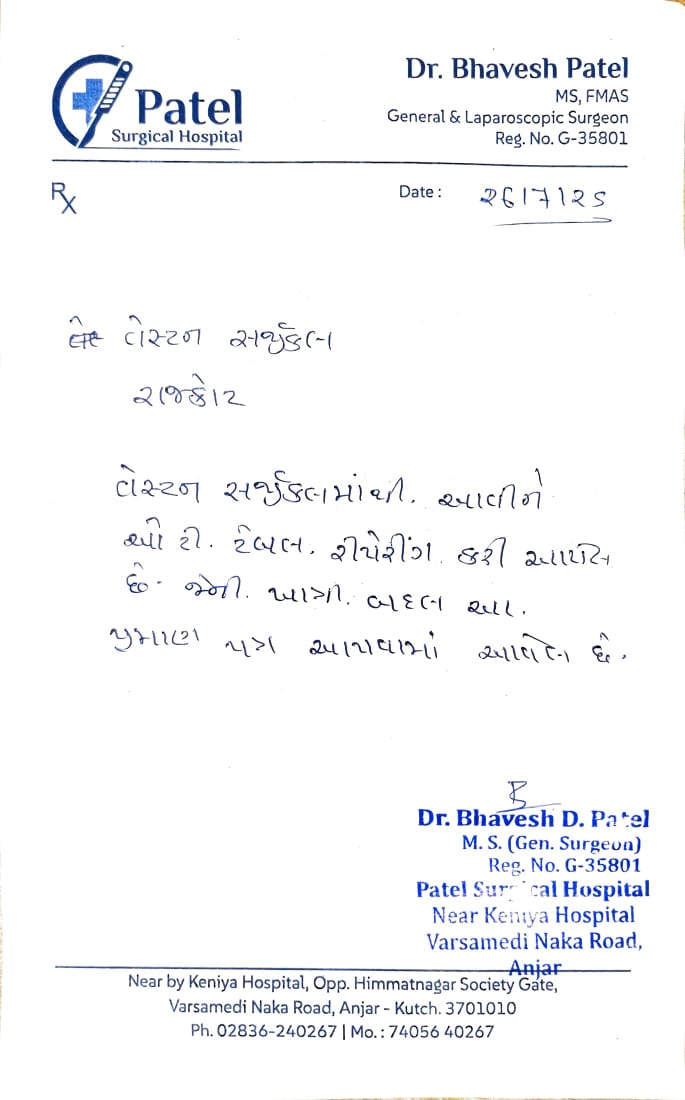 Patel
Surgical Hospital
Dr. Bhavesh Patel
MS, FMAS
General & Laparoscopic Surgeon
Reg. No. G-35801
Rx
Date : ૨૬/૭/૨૫
વેસ્ટન સર્જીકલ
રાજકોટ
વેસ્ટન સર્જીકલમાંથી. આવીને
ઓ ટી. ટેબલ. રીપેરીંગ કરી આપેલ
છે. જેની. ખાત્રી. બદલ આ.
પ્રમાણ પત્ર આપવામાં આવેલ છે.
Dr. Bhavesh D. Patel
M. S. (Gen. Surgeon)
Reg. No. G-35801
Patel Surgical Hospital
Near Keniya Hospital
Varsamedi Naka Road,
Anjar
Near by Keniya Hospital, Opp. Himmatnagar Society Gate,
Varsamedi Naka Road, Anjar - Kutch. 3701010
Ph. 02836-240267 | Mo. : 74056 40267